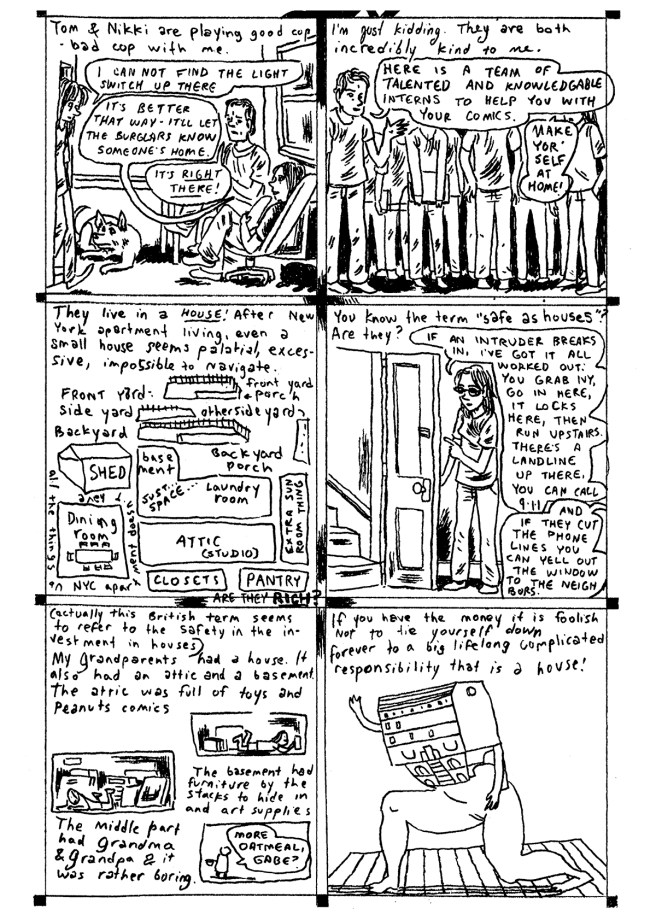 Tom & Nikki are playing good cop
- bad cop with me.
I CAN NOT FIND THE LIGHT
SWITCH UP THERE
IT'S BETTER
THAT WAY - IT'LL LET
THE BURGLARS KNOW
SOMEONE'S HOME.
IT'S RIGHT
THERE!
I'm just kidding. They are both
incredibly kind to me.
HERE IS A TEAM OF
TALENTED AND KNOWLEDGABLE
INTERNS TO HELP YOU WITH
YOUR COMICS.
MAKE
YOR'
SELF
AT
HOME!
They live in a HOUSE! After New
York apartment living, even a
small house seems palatial, exces-
sive, impossible to navigate.
FRONT yard:
front yard
porch
Side yard
otherside yard
Backyard
Backyard
porch
SHED
base
ment
JUST...
SPACE...
Laundry
room
EXTRA SUN
ROOM THING
Dining
room
ATTIC
(STUDIO)
CLOSETS
PANTRY
all the things
an NYC apart
ment doesn't
have
ARE THEY RICH?
You know the term "safe as houses"?
Are they?
IF AN INTRUDER BREAKS
IN, I'VE GOT IT ALL
WORKED OUT:
YOU GRAB IVY,
GO IN HERE,
IT LOCKS
HERE, THEN
RUN UPSTAIRS.
THERE'S A
LANDLINE
UP THERE,
YOU CAN CALL
9-11
AND
IF THEY CUT
THE PHONE
LINES YOU
CAN YELL OUT
THE WINDOW
TO THE NEIGH
BORS.
(actually this British term seems
to refer to the safety in the in-
vestment in houses)
My Grandparents had a house. It
also had an attic and a basement.
The attic was full of toys and
Peanuts comics
The basement had
furniture by the
stacks to hide in
and art supplies
The middle part
had Grandma
& Grandpa & it
was rather boring.
MORE
OATMEAL,
GABE?
If you have the money it is foolish
Not to tie yourself down
forever to a big lifelong complicated
responsibility that is a house!